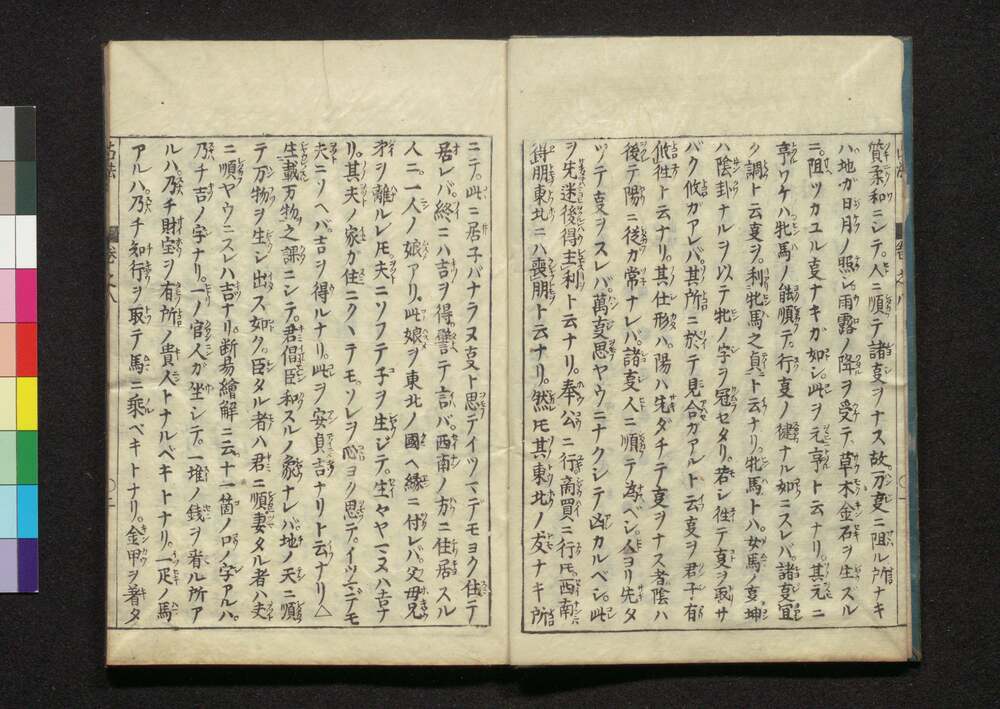 質柔和ニシテ。人ニ順テ諸夏ヲナス故。万夏ニ阻ル所ナキ
ハ地ガ日月ノ照シ雨露ノ降ヲ受テ。草木金石ヲ生ズル
ニ。阻ツカユル夏ナキガ如シ。此ヲ元亨ト云ナリ。其元ニ
亨ワケハ牝馬ノ能順テ。行夏ノ健ナル如ニスレバ。諸夏宜
ク調ト云夏ヲ。利牝馬之貞ト云ナリ。牝馬トハ。女馬ノ夏坤
ハ陰卦ナルヲ以テ牝ノ字ヲ冠セタリ。若シ往テ夏ヲ取サ
バク攸カアレバ。其所ニ於テ見合カアルト云夏ヲ君子有
攸往ト云ナリ。其仕形ハ。陽ハ先ダチテ夏ヲナス者陰ハ
後テ陽ニ從カ常ナレバ。諸夏人ニ順テ為ベシ。人ヨリ先タ
ツテ夏ヲスレバ。萬夏思ヤウニナクシテ凶カルベシ。此
ヲ先迷後得主利ト云ナリ。奉公ニ行商買ニ行ニ。西南
得朋東北ニハ喪朋ト云ナリ。然ニ其東北ノ友ナキ所
ニテ。此ニ居子バナラヌ夏ト思テイツマデモヨク住テ
居レバ。終ニハ吉ヲ得。譬テ言バ。西南ノ方ニ住居スル
人ニ。一人ノ娘アリ。此娘ヲ東北ノ國ヘ縁ニ付レバ。父母兄
弟ヲ離ルレ𪜈夫ニソフテ子ヲ生ジテ。生々ヤマヌハ吉ナ
リ。其夫ノ家ガ住ニクヽテモ。ソレヲ心ヨリ思テ。イツマデモ
夫ニソヘバ吉ヲ得ルナリ。此ヲ安貞吉ナリト云ナリ△
生載万物之課ニシテ。君倡臣和スルノ象ナレバ地ノ天ニ順
テ万物ヲ生シ出ス如ク。臣タル者ハ君ニ順妻タル者ハ夫
ニ順ヤウニスレハ吉ナリ。断易繪解ニ云十一箇ノ口ノ字アルハ。
乃チ吉ノ字ナリ。一リノ官人ガ坐シテ。一堆ノ錢ヲ看ル所ア
ルハ。乃チ財宝ヲ有所ノ貴人トナルベキトナリ。一疋ノ馬
アルハ乃チ知行ヲ取テ馬ニ乗ベキトナリ。金甲ヲ著タ